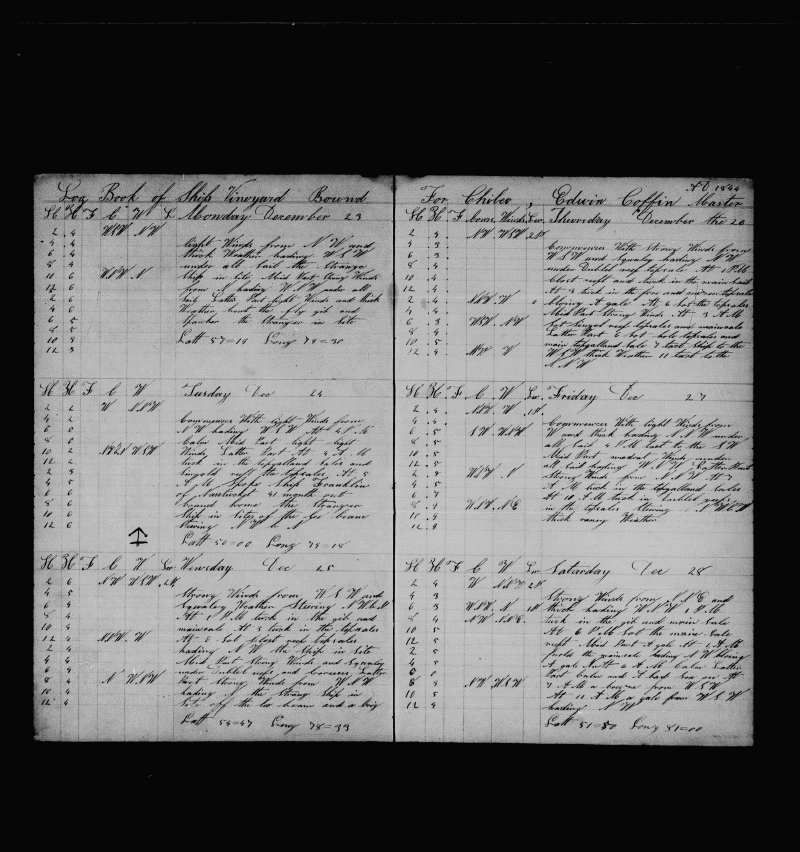 Log Book of Ship Vineyard Bound
H K F C W L Monday December 23
2 4 WSW NW
4 4 light Winds from N W and
6 4 thick Weather heading W S W
8 4 under all Sail the Strange
10 6 WNW N Ship in Site Mid Part Strong Winds
12 6 from N heading W N W under all
2 6 Sail Latter Part light Winds and thick
4 6 Weather bent the fly gib and
6 5 Spanker the Stranger in Site
8 5
10 3 Latt 57=19 Long 79=30
12 3
H K F C W Tursday Dec 24
2 2 W NNW
4 2 Commences With light Winds from
6 0 heading W S W At 4 P M
8 0 Calm Mid Part light light
10 2 WSW Winds Latter Part At 4 A M
12 2 tuck in the topgallant Sales and
2 3 the topsales At 5
4 5 A M Spoke Ship Franklin
6 6 of Nantucket 41 month out
8 6 bound home the Stranger
10 6 Ship in Site of the lee beame
12 6 Stering N W b N
Latt 56=00 Long 79=18
H K F C W Lw Wensday Dec 25
2 6 NW WSW 2 Pt
4 5 Strong Winds from W S W and
6 4 Squaley Weather Stering N W b N
8 4 At 1 P M tuck in the gib and
10 4 mainsale At 3 tuck in the topsales
12 4 NNW W At 6 Sot Clost reef topsales
2 4 heading N W the Ship in Site
4 4 Mid Part Strong Winds and Squaley
6 4 under Dubbel reefs and Courses Latter
8 4 N WNW Part Strong Winds from W N W
10 4 heading N the Strang Ship in
12 4 Site off the lee beame and a brig
Latt 54=47 Long 78=39
AD 1844
For Chiloe, Edwin Coffin Master
H K F Cours Winds Lw Thursday December the 26
2 4 NW WSW 2 Pt
4 3 Commences With Strong Winds from
6 3 W S W and Squaley heading N W
8 4 under Dubbel reef topsales At 1 P M
10 4 Clost reeft and tuck in the main sail
12 4 At 3 tuck in the fore and mizen topsales
2 4 NNW W 0 Bloing A gale At 6 Sot the topsales
4 4 Mid Part Strong Winds At 3 A M
6 3 WSW NW Sot Singel reef topsales and mainsale
8 4 Latter Part 6 Sot hole topsales and
10 5 main topgalland Sale 7 tact Ship to the
12 4 W W S W thick Weather 11 tact to the
N N W
H K F C W Lw Friday Dec 27
2 4 NNW W 1 Pt
4 4 Commences With light Winds from
6 5 SW WNW W and thick heading N N W under
8 5 all Sail 4 P M tact to the S W
10 5 Mid Part modrat Winds under
12 4 all Sail heading W N W Latter Part
2 3 WNW N Strong Winds from N N W At 7
4 5 A M tuck in the topgallant Sales
6 7 At 10 A M tuck in Dubbel reefs
8 8 WNW NE in the topsales Stering N W b W
10 9 thick raney Weather
12 8
H K F C W Lw Saturday Dec 28
2 4 W NNW 2 Pt
4 3 Strong Winds from N N E and
6 3 WNW N 1 Pt thick heading W N W 1 P M
8 4 NW NNE tuck in the gib and main Sale
10 5 At 6 P M Sot the main Sale
12 5 reeft Mid Part A gale At 1 A M
2 5 furld the mainsale heading N W bloing
4 5 A gale Untill 6 A M Calm Latter
6 0 Part Calm and A bad Sea on At
8 3 NW WSW 7 A M a breeze from W S W
10 4 At 11 A M a gale from W S W
12 4 heading N W
Latt 51=50 Long 81=00